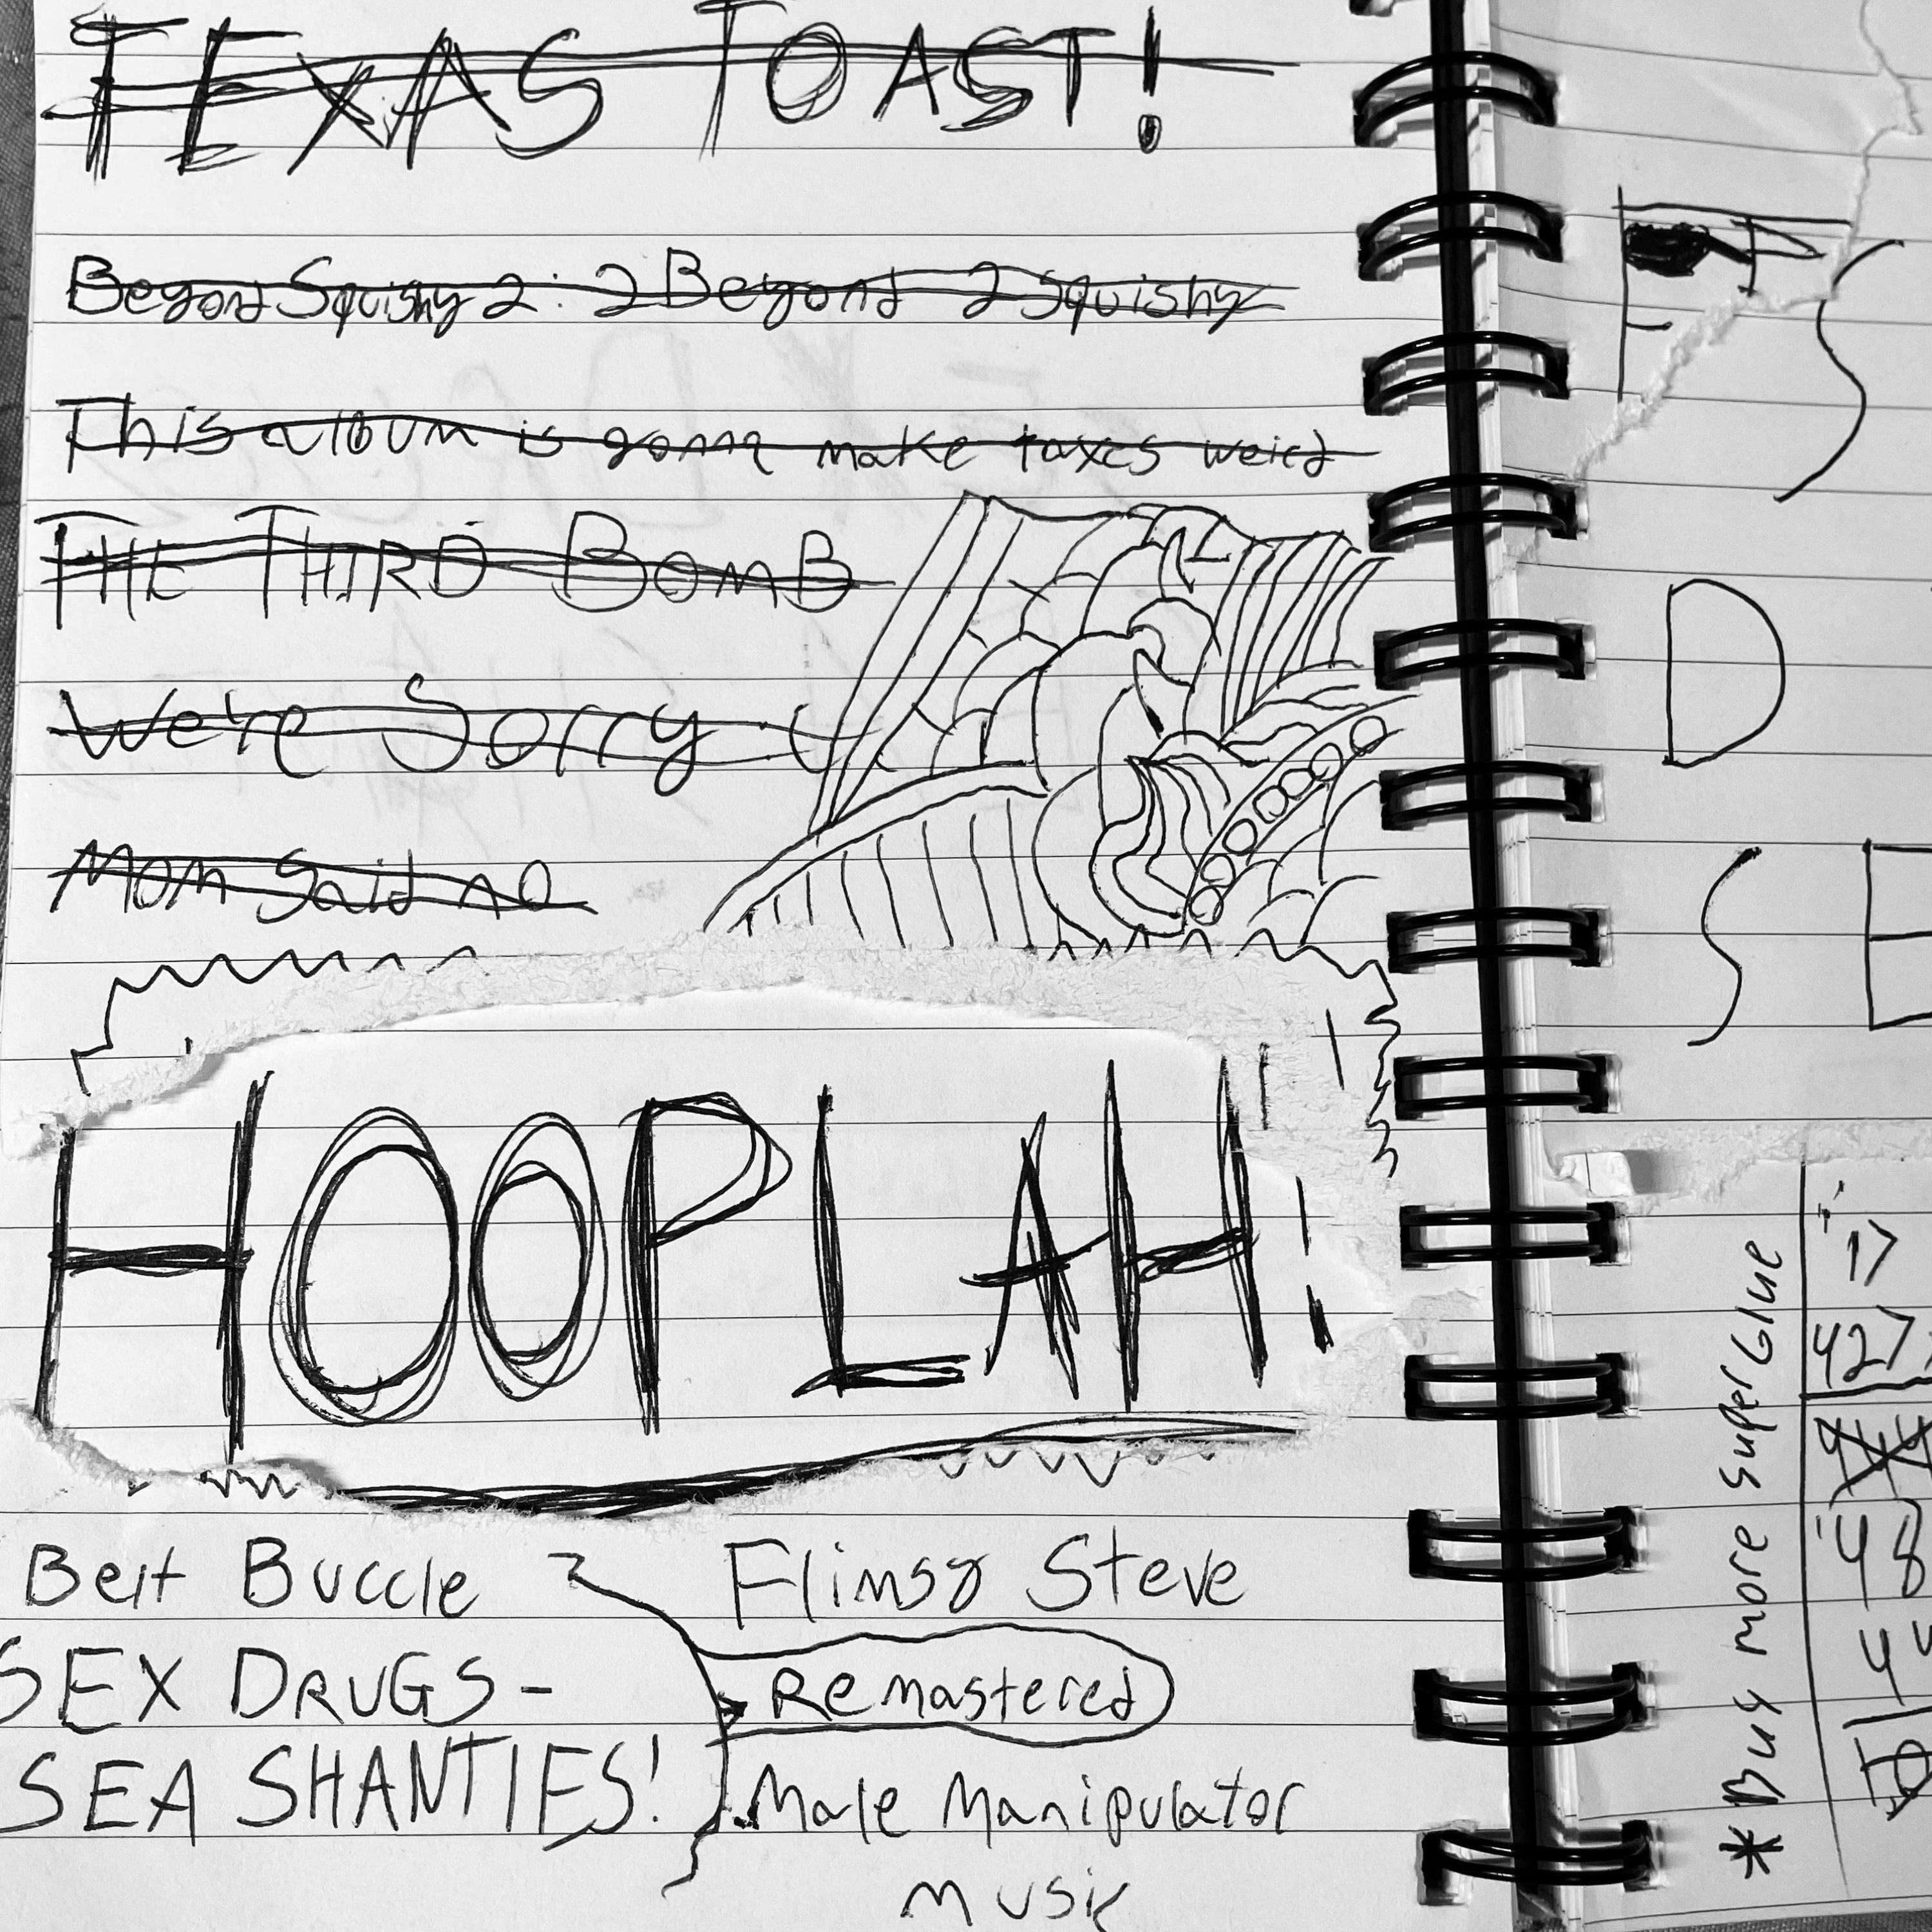 TEXAS TOAST!
Beyond Squishy 2: 2 Beyond 2 Squishy
This album is gonna make taxes weird
THE THIRD BOMB
We're Sorry :(
Mom Said no
HOOPLAH!
Belt Buccle
SEX DRUGS-
SEA SHANTIES!
Flimsy Steve
Remastered
Male Manipulator
Music
S
D
S E
*Buy more super Glue
17
427
48
44